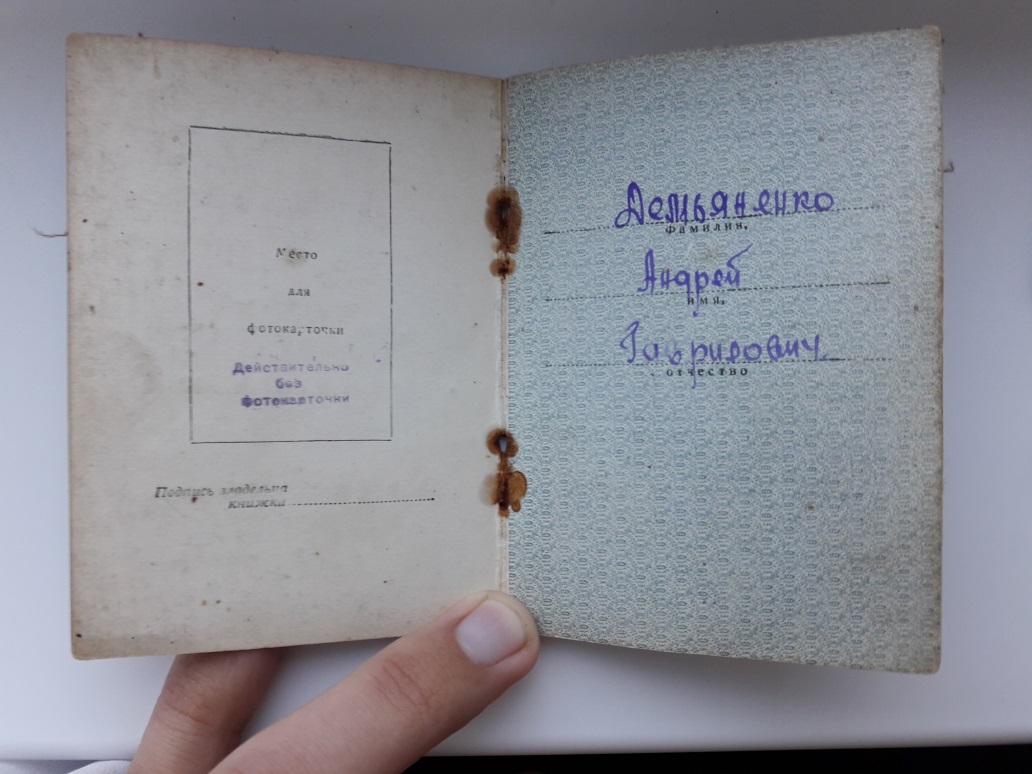 Место
для
фотокарточки
Действительно
без
фотокарточки
Подпись владельца
книжки
Демьяненко
фамилия,
Андрей
имя,
Гаврилович
отчество